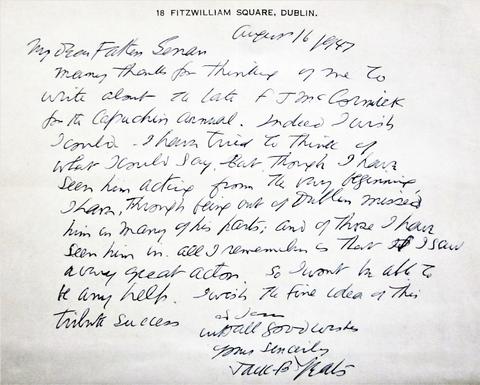 18 FITZWILLIAM SQUARE, DUBLIN.
August 16 1947
My Dear Father Senan
many thanks for thinking of me to
write about the late F J McCormick
for the Capuchin annual. Indeed I wish
I could. I have tried to think of
what I could say, but though I have
seen him acting from the very beginning
I have, through being out of Dublin missed
him in many of his parts; and of those I have
seen him in. all I remember is that I saw
a very great actor so I wont be able to
be any help. I wish the fine idea of this
tribute success
as I am
with all good wishes
yours sincerely
Jack B Yeats